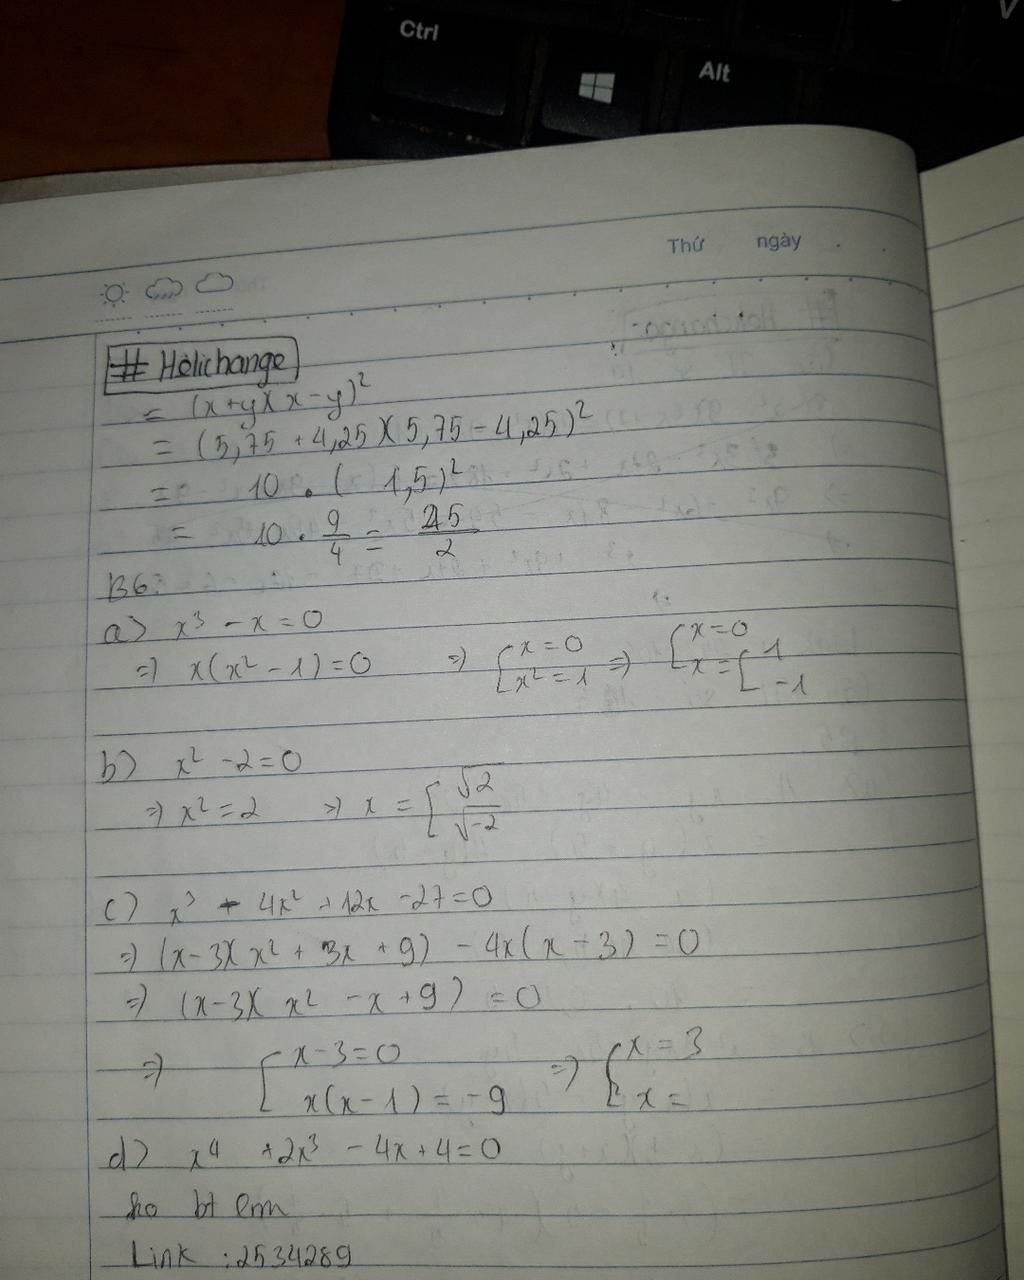 Ctrl
Alt
V
Thứ ngày
# Helichange
= (x+y)(x-y)²
= (5,75 + 4,25)(5,75 - 4,25)²
= 10 . ( 1,5)²
= 10 . 9/4 = 45/2
B6:
a) x³ - x = 0
=> x(x² - 1) = 0 => [x = 0 [x = 0
x² = 1 => x = [1
-1
b) x² - 2 = 0
=> x² = 2 => x = [√2
√-2
c) x³ - 4x² + 12x - 27 = 0
=> (x-3)(x² + 3x + 9) - 4x(x - 3) = 0
=> (x-3)(x² - x + 9) = 0
=> [x - 3 = 0 => [x = 3
x(x - 1) = -9 x =
d) x⁴ + 2x³ - 4x + 4 = 0
ko bt lm
Link : 2534289